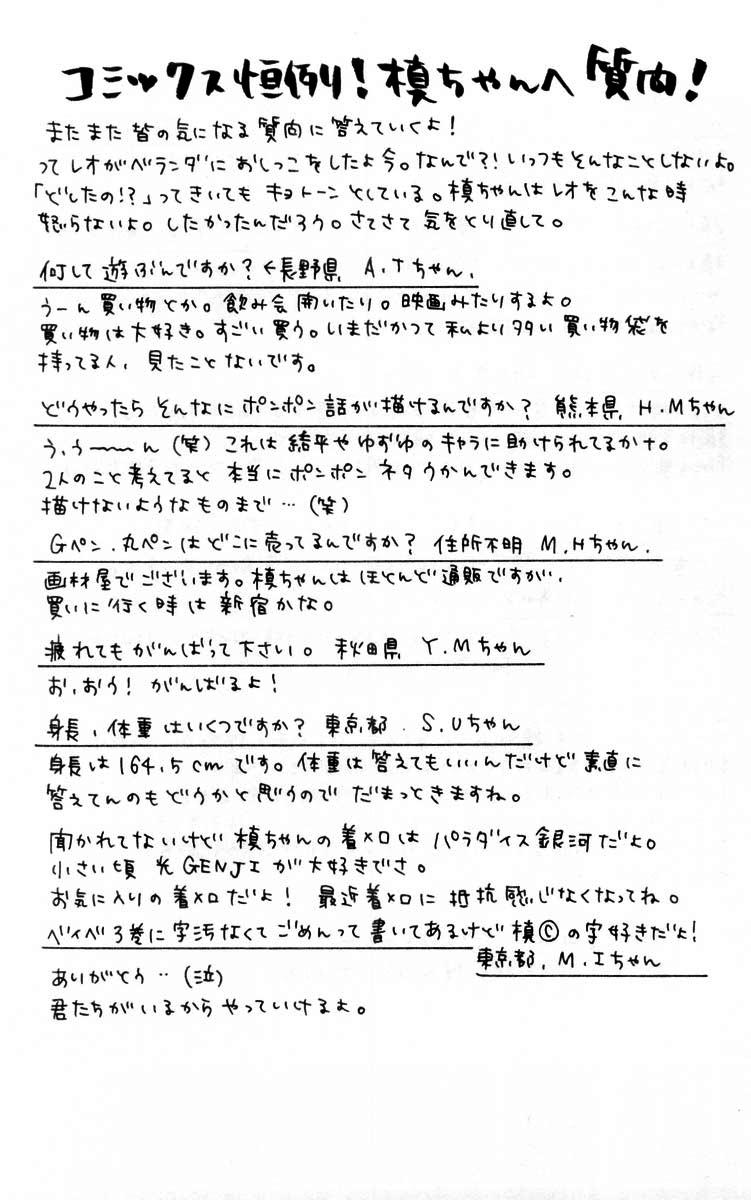 コミックス恒例!槙ちゃんへ質問!
またまた皆の気になる質問に答えていくよ!
ってレオがベランダにおしっこをしたよ今。なんで?!いっつもそんなことしないよ。
「どしたの!?」ってきいてもキョトーンとしている。槙ちゃんはレオをこんな時
怒らないよ。したかったんだろう。さてさて気をとり直して。
何して遊ぶんですか?←長野県 A.Tちゃん.
うーん買い物とか。飲み会開いたり。映画みたりするよ。
買い物は大好き。すごい買う。いまだかつて私より多い買い物袋を
持ってる人、見たことないです。
どうやったらそんなにポンポン話が描けるんですか? 熊本県 H.Mちゃん
う、う〜〜ん(笑)これは結平やゆずゆのキャラに助けられてるかナ。
2人のこと考えてると本当にポンポンネタうかんできます。
描けないようなものまで…(笑)
Gペン.丸ペンはどこに売ってるんですか? 住所不明 M.Hちゃん.
画材屋でございます。槙ちゃんはほとんど通販ですが、
買いに行く時は新宿かな。
疲れてもがんばって下さい。 秋田県 Y.Mちゃん
お、おう!がんばるよ!
身長、体重はいくつですか? 東京都.S.Uちゃん
身長は164.5cmです。体重は答えてもいいんだけど素直に
答えてんのもどうかと思うのでだまっときますね。
聞かれてないけど槙ちゃんの着メロはパラダイス銀河だよ。
小さい頃光GENJIが大好きでさ。
お気に入りの着メロだよ! 最近着メロに抵抗感じなくなってね。
ベイベ3巻に字汚なくてごめんって書いてあるけど槙©の字好きだよ!
東京都.M.Iちゃん
ありがとう‥(泣)
君たちがいるからやっていけるよ。